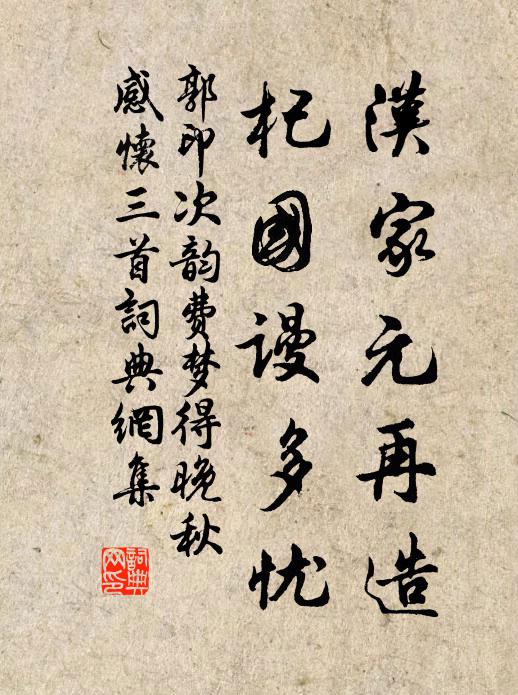 漢家元再造
杞國謾多忧
郭印次韵費梦得晚秋
感懷三首詞典網集
詞典网印